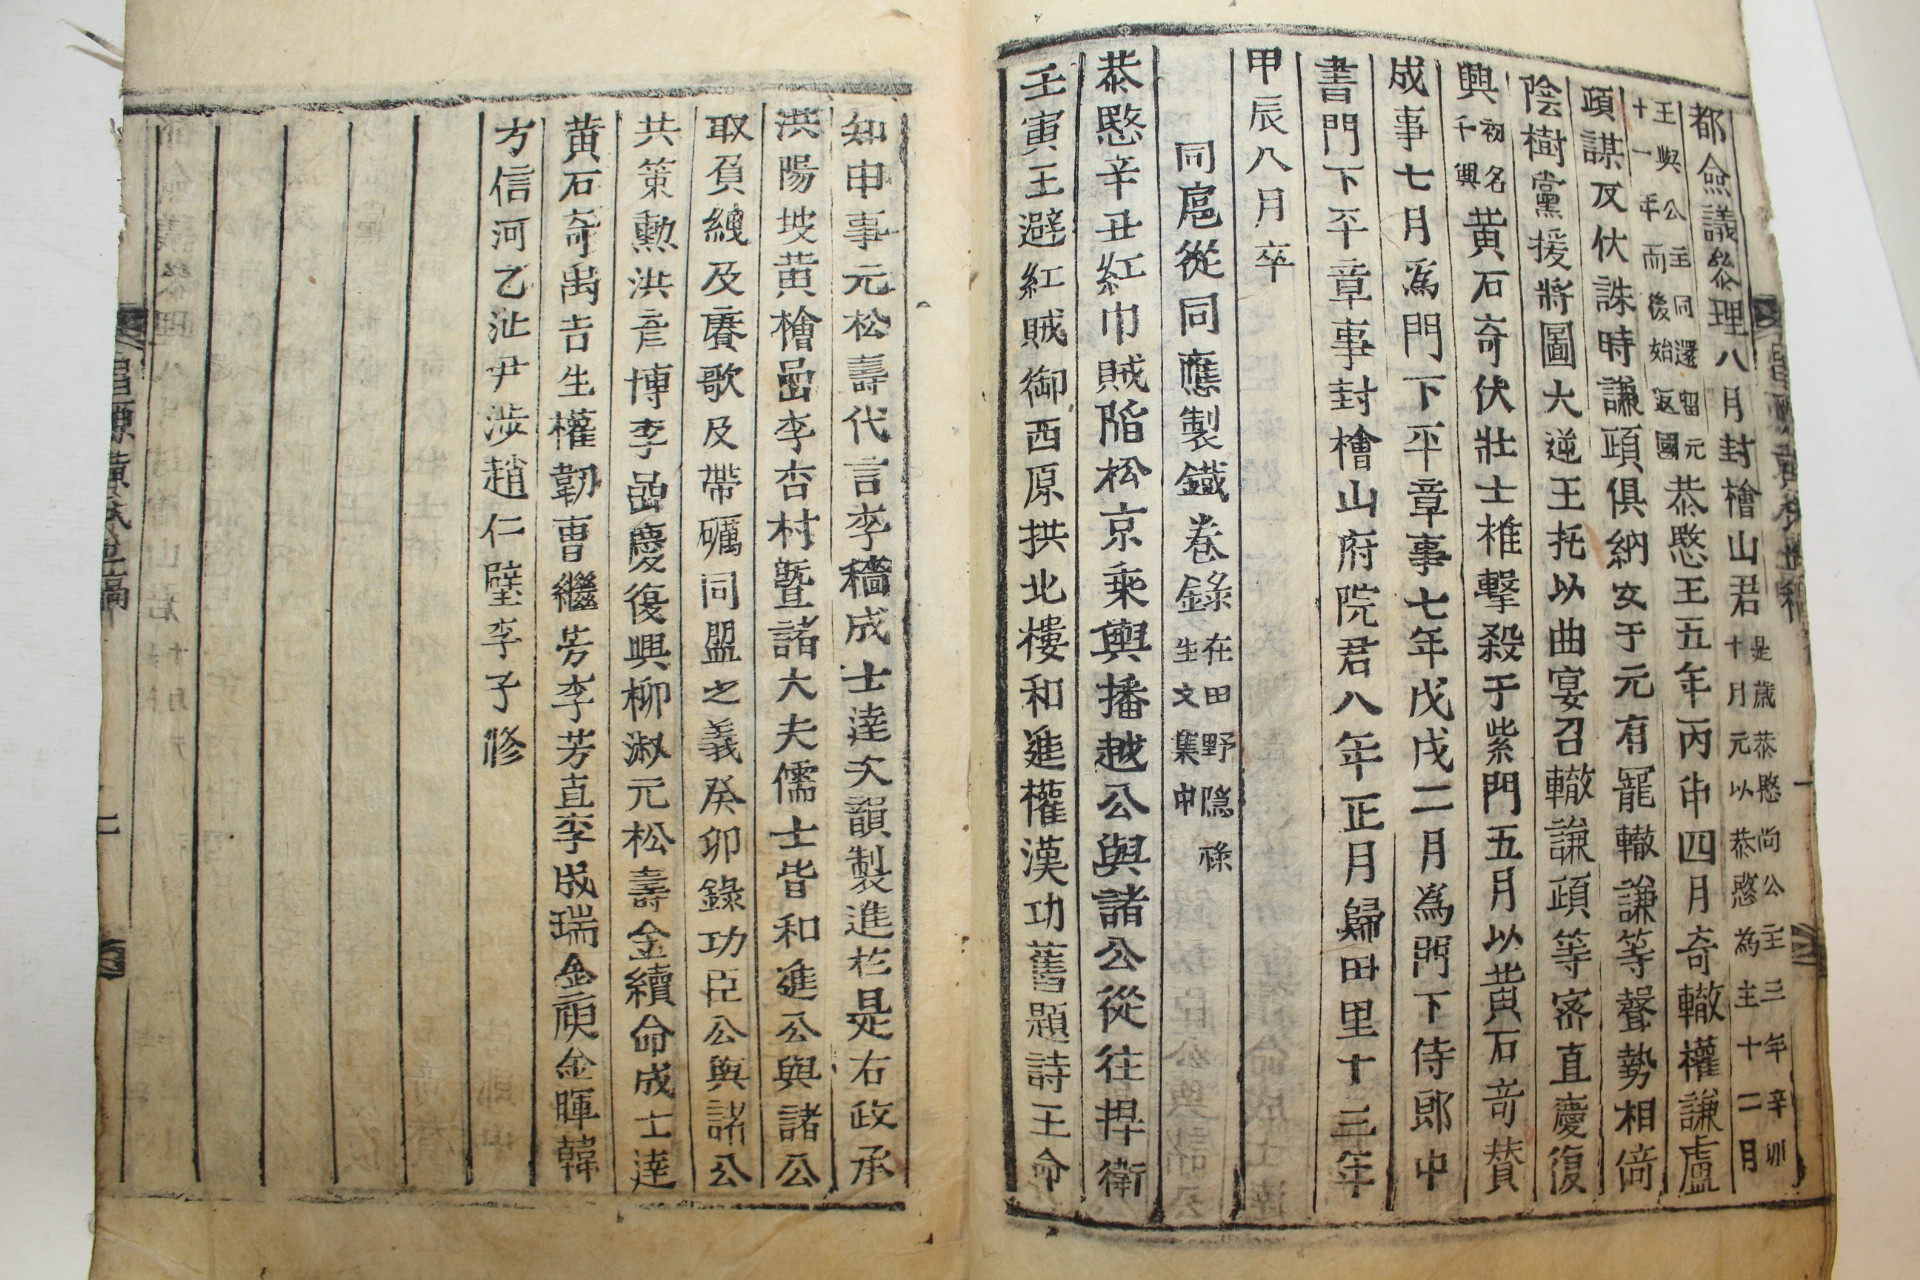 都僉議參理八月封檜山君是歲恭愍尚公主三年辛卯十月元以恭愍為主十二月
王與公主同還留元十一年而後始返國恭愍王五年丙申四月奇轍權謙盧
頙謀反伏誅時謙頙俱納女于元有寵轍謙等聲勢相倚
陰樹黨援將圖大逆王托以曲宴召轍謙頙等密直慶復
興初名千興黃石奇伏壯士椎擊殺于紫門五月以黃石奇贊
成事七月爲門下平章事七年戊戌二月爲門下侍郎中
書門下平章事封檜山府院君八年正月歸田里十三年
甲辰八月卒
同扈從同應製鐵卷錄在田野隱祿生文集中
恭愍辛丑紅巾賊陷松京乘輿播越公與諸公從往捍衛
壬寅王避紅賊御西原拱北樓和進權漢功舊題詩王命
知申事元松壽代言李穡成士達次韻製進於是右政承
洪陽坡黃檜嵒李杏村曁諸大夫儒士皆和進公與諸公
取負緤及賡歌及帶礪同盟之義癸卯錄功臣公與諸公
共策勳洪彦博李嵒慶復興柳淑元松壽金續命成士達
黃石奇禹吉生權韌曹繼芳李芳直李成瑞金庾金暉韓
方信河乙沚尹涉趙仁璧李子修